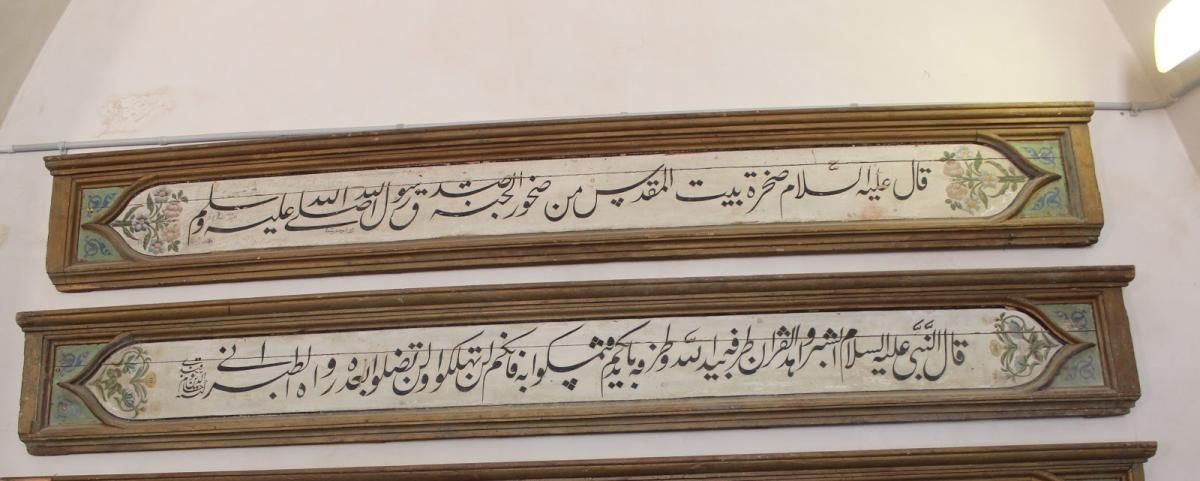 قال عليه السلام صخرة بيت المقدس من صخور الجنة صدق رسول الله صلى الله عليه وسلم
قال النبي عليه السلام ابشروا هذا القرآن طرفه بيد الله وطرفه بايديكم فتمسكوا به فانكم لن تهلكوا ولن تضلوا بعده رواه الطبراني